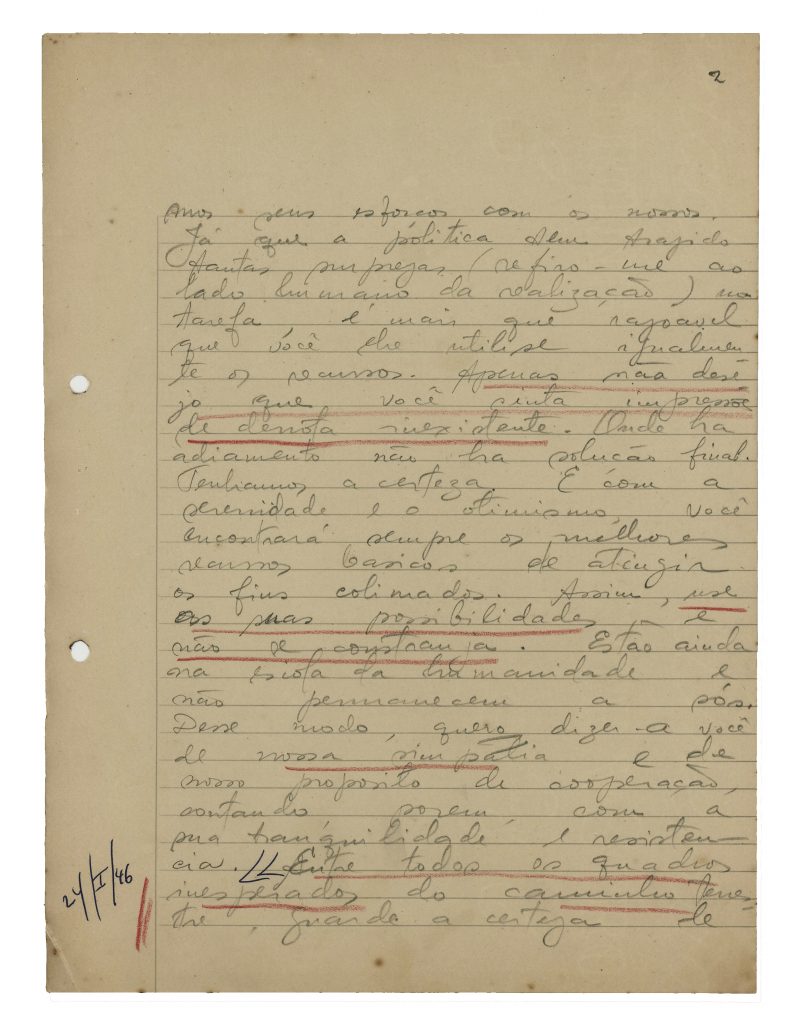 2
seus esforços com os nossos.
Já que a politica tem trazido
tantas surprezas (refiro-me ao
lado humano da realização) na
tarefa, é mais que razoavel
que você lhe utilise igualmen
te os recursos. Apenas não dese
jo que você sinta impressão
de derrota inexistente. Onde ha
adiamento não ha solução final.
Tenhamos a certeza. E com a
serenidade e o otimismo você
encontrará sempre os melhores
recursos basicos de atingir
os fins colimados. Assim, use
as suas possibilidades, e
não se constranja. Estão ainda
na escola da humanidade e
não permanecem a sós.
Desse modo, quero dizer-a você
de nossa simpatia e de
nosso proposito de cooperação,
contando porem, com a
sua tranquilidade e resisten-
cia. Entre todos os quadros
inesperados do caminho terres-
tre, guarde a certeza de
24/I/46